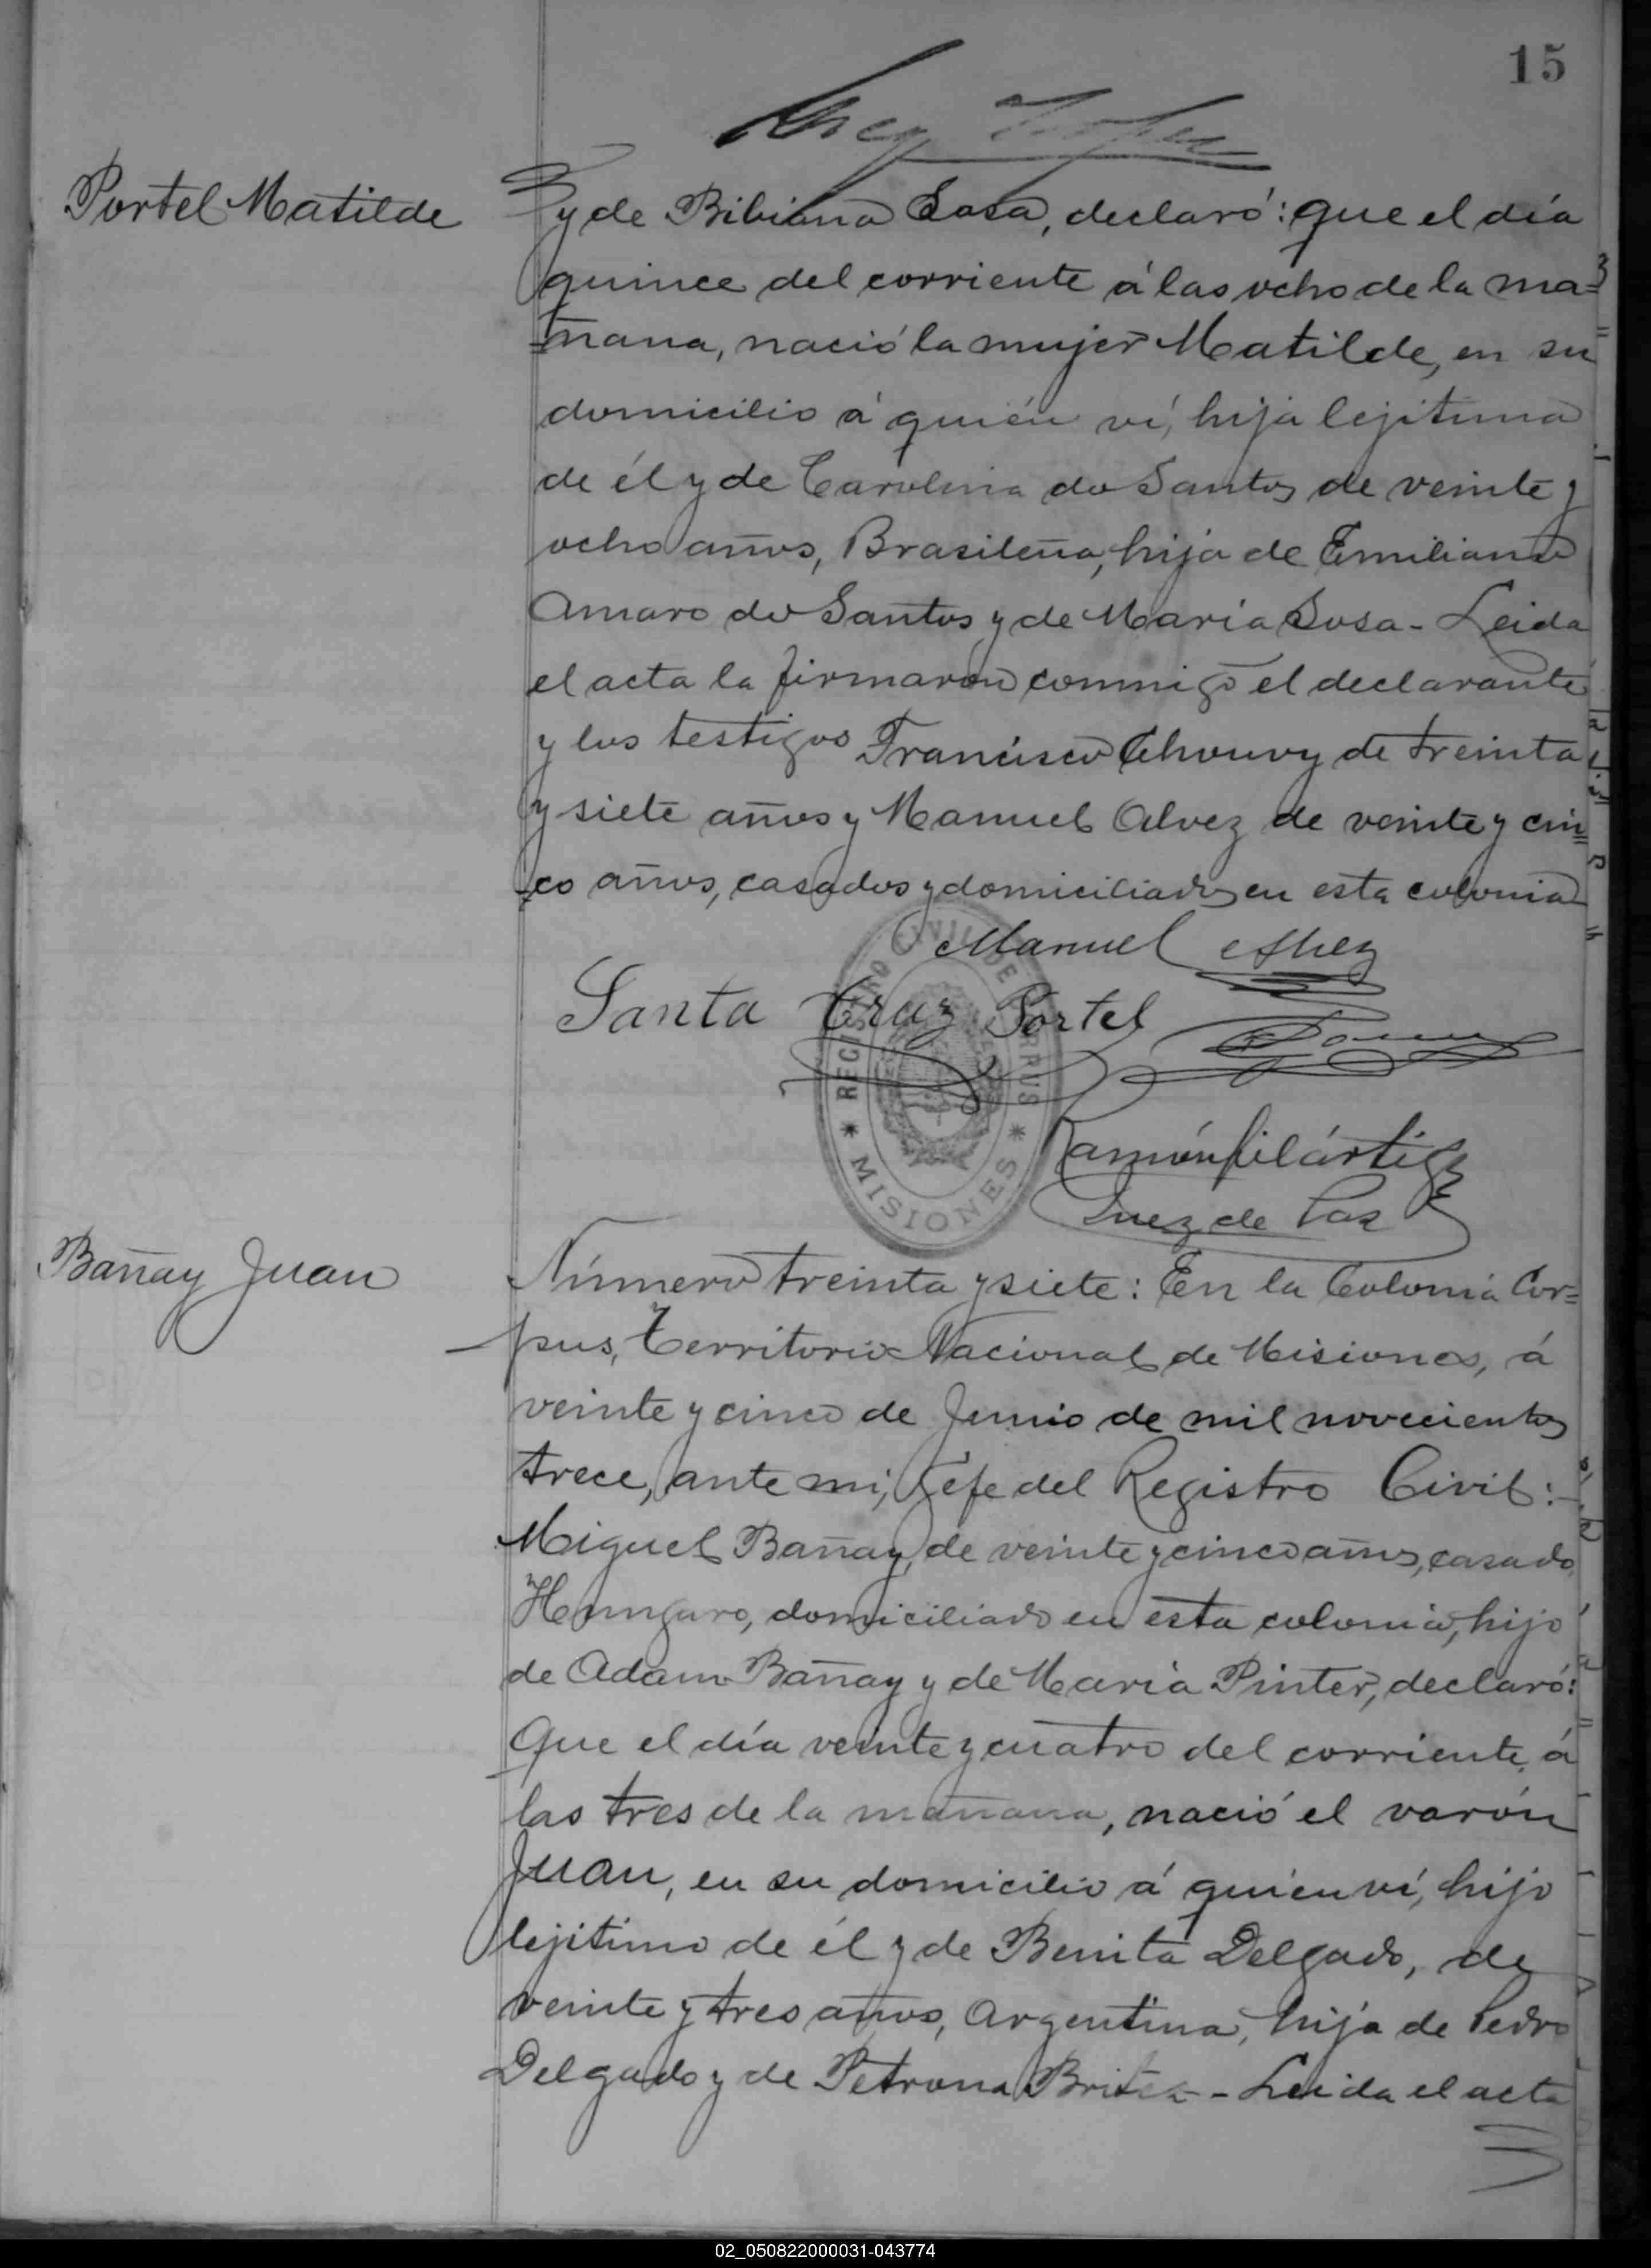 15
Portel Matilde
y de Bibiana Sosa, declaró: que el día
quince del corriente á las ocho de la ma=
=ñana, nació la mujer Matilde, en su
domicilio á quién ví, hija lejitima
de él y de Carolina do Santos de veinte y
ocho años, Brasileña, hija de Emiliano
Amaro do Santos y de María Sosa - Leida
el acta la firmaron commigo el declarante
y los testigos Francisco Chouvy de treinta
y siete años y Manuel Alvez de veinte y cin=
=co años, casados y domiciliados en esta colonia
Manuel Alvez
Santa Cruz Portel
REGISTRO CIVIL DE CORPUS
* MISIONES *
Ramón Filártiga
Juez de Paz
Bañay Juan
Número treinta y siete: En la Colonia Cor=
pus, Territorio Nacional de Misiones, á
veinte y cinco de Junio de mil novecientos
trece, ante mi, Gefe del Registro Civil:-
Miguel Bañay, de veinte y cinco años, casado,
Hungaro, domiciliado en esta colonia, hijo
de Adam Bañay y de María Pinter, declaró:
Que el día veinte y cuatro del corriente, á
las tres de la mañana, nació el varón
Juan, en su domicilio á quien ví, hijo
lejitimo de él y de Benita Delgado, de
veinte y tres años, Argentina, hija de Pedro
Delgado y de Petrona Britez - Leida el acta
02_050822000031-043774